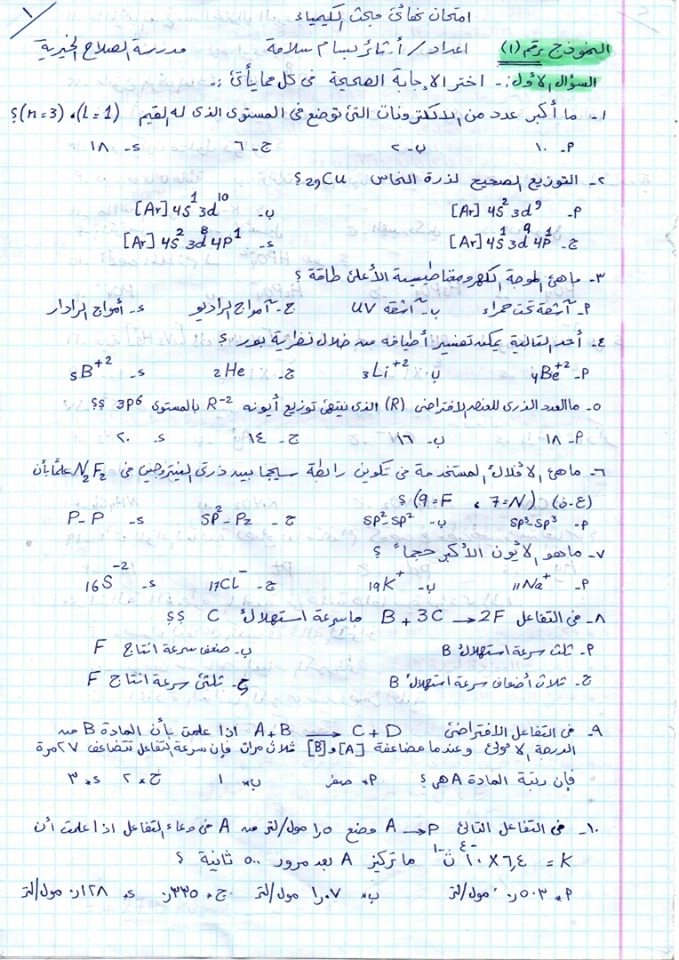 امتحان نهائي مبحث الكيمياء
١
النموذج رقم (١) اعداد / أ. ثائر بسام سلامة مدرسة الصلاح الخيرية
السؤال الأول :- اختر الإجابة الصحيحة في كل مما يأتي :-
١- ما أكبر عدد من الالكترونات التي توضع في المستوى الذي له القيم (n=3)، (l=1)؟
٢- ١٠ ب- ٢ ج- ٦ د- ١٨
٢- التوزيع الصحيح لذرة النحاس 29Cu ؟
٢- [Ar] 4S² 3d⁹ ب- [Ar] 4S¹ 3d¹⁰
ج- [Ar] 4S¹ 3d⁹ 4P¹ د- [Ar] 4S² 3d⁸ 4P¹
٣- ما هي الموجة الكهرومغناطيسية الأعلى طاقة ؟
٢- أشعة تحت حمراء ب- أشعة UV ج- أمواج الراديو د- أمواج الرادار
٤- أحد التالية يمكن تفسير أطيافه من خلال نظرية بور ؟
٢- 4Be⁺² ب- 3Li⁺² ج- 2He د- 5B⁺²
٥- ما العدد الذري للعنصر الافتراضي (R) الذي ينتهي توزيع أيونه R⁻² بالمستوى 3P⁶ ؟؟
٢- ١٨ ب- ١٦ ج- ١٤ د- ٢٠
٦- ما هي الأفلاك المستخدمة في تكوين رابطة سيجما بين ذرتي النيتروجين في N₂F₂ علماً بأن
(ع.ذ) (7=N ، 9=F) ؟
٢- SP³-SP³ ب- SP²-SP² ج- SP²-Pz د- P-P
٧- ما هو الأيون الأكبر حجماً ؟
٢- 11Na⁺ ب- 19K⁺ ج- 17Cl⁻ د- 16S⁻²
٨- في التفاعل B + 3C → 2F ما سرعة استهلاك C ؟؟
٢- ثلث سرعة استهلاك B ب- ضعف سرعة انتاج F
ج- ثلاث أضعاف سرعة استهلاك B د- ثلثي سرعة انتاج F
٩- في التفاعل الافتراضي A+B → C+D اذا علمت بأن المادة B من
الدرجة الاولى وعندما مضاعفة [A] و [B] ثلاث مرات فإن سرعة التفاعل تتضاعف ٢٧ مرة
فإن رتبة المادة A هي ؟ ٢* صفر ب* ١ ج* ٢ د* ٣
١٠- في التفاعل التالي A → P وضع ١,٥ مول/لتر من A في وعاء التفاعل اذا علمت أن
K = ٦,٤ × ١٠⁻٤ ث⁻١ ما تركيز A بعد مرور ٥٠٠ ثانية ؟